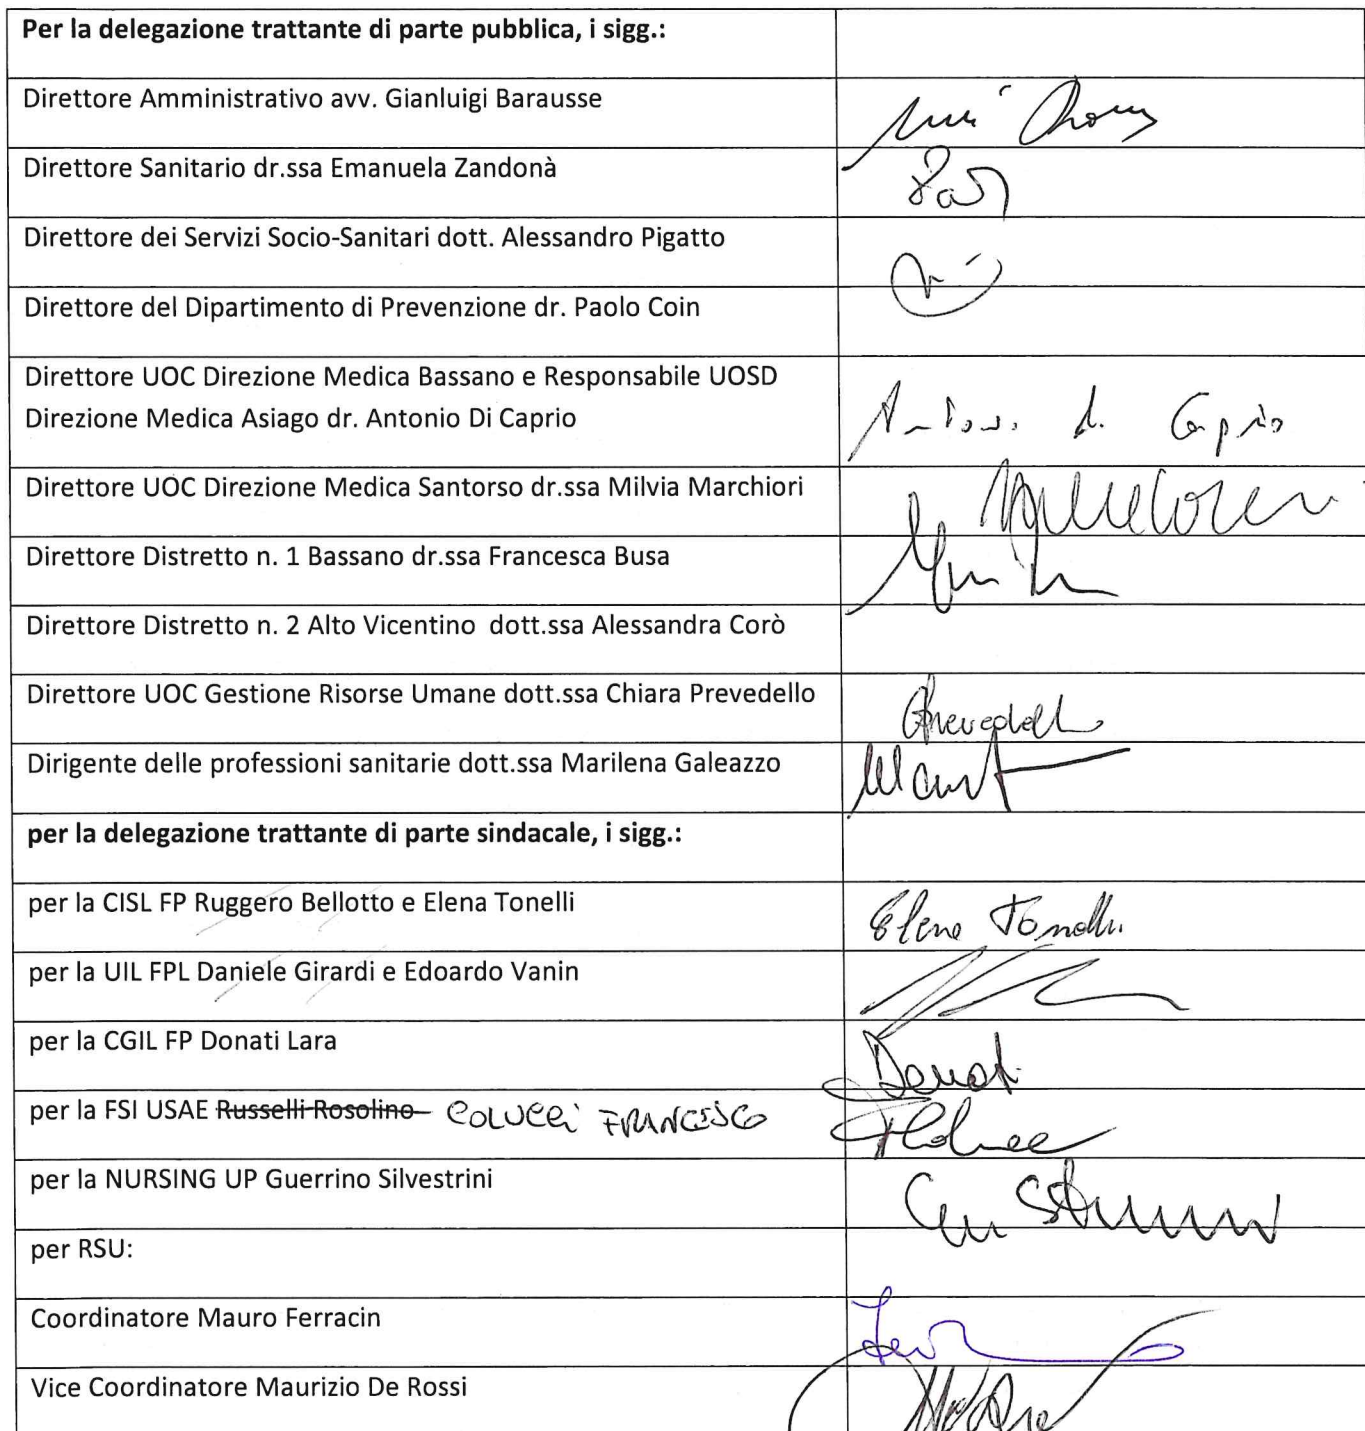 Per la delegazione trattante di parte pubblica, i sigg.:
Direttore Amministrativo avv. Gianluigi Barausse
Direttore Sanitario dr.ssa Emanuela Zandonà
Direttore dei Servizi Socio-Sanitari dott. Alessandro Pigatto
Direttore del Dipartimento di Prevenzione dr. Paolo Coin
Direttore UOC Direzione Medica Bassano e Responsabile UOSD
Direzione Medica Asiago dr. Antonio Di Caprio
Direttore UOC Direzione Medica Santorso dr.ssa Milvia Marchiori
Direttore Distretto n. 1 Bassano dr.ssa Francesca Busa
Direttore Distretto n. 2 Alto Vicentino dott.ssa Alessandra Corò
Direttore UOC Gestione Risorse Umane dott.ssa Chiara Prevedello
Dirigente delle professioni sanitarie dott.ssa Marilena Galeazzo
per la delegazione trattante di parte sindacale, i sigg.:
per la CISL FP Ruggero Bellotto e Elena Tonelli Elena Tonelli
per la UIL FPL Daniele Girardi e Edoardo Vanin
per la CGIL FP Donati Lara Donati
per la FSI USAE Russelli Rosolino COLUCCI FRANCESCO
per la NURSING UP Guerrino Silvestrini
per RSU:
Coordinatore Mauro Ferracin
Vice Coordinatore Maurizio De Rossi